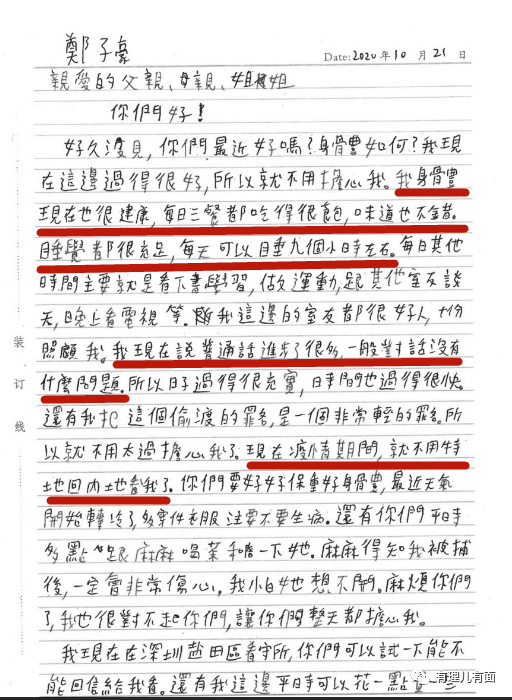 鄭子豪
Date: 2020 年 10 月 21 日
親愛的父親、母親、姐姐
你們好！
好久没見，你們最近好嗎？身骨豊如何？我現
在這邊過得很好，所以就不用擔心我。我身骨豊
現在也很健康，每日三餐都吃得很飽，味道也不錯。
睡覺都很充足，每天可以睡九個小時左右。每日其他
時間主要就是看下書學習，做女運動，跟其他室友談
天，晚上看電視等。我這邊的室友都很好人，十份
照顧我。我現在説普通話進步了很多，一般對話沒有
什麼問題。所以日子過得很充實，時間也過得很快。
還有我犯這個偷渡的罪名，是一個非常輕的罪名。所
以就不用太過擔心我了。現在疫情期間，就不用特
地回内地看我了。你們要好好保重好身骨豊，最近天氣
開始轉冷了，多穿件衣服注意不要生病。還有你們平時
多點跟麻麻喝茶和一下她。麻麻得知我被捕
後，一定會非常傷心，我小白她想不開。麻煩你們
了，我也很對不起你們，讓你們整天都擔心我。
我現在在深圳鹽田區看守所，你們可以試一下能不
能回信給我看。還有我這邊平日時可以花一點
装
订
线
有理儿有面